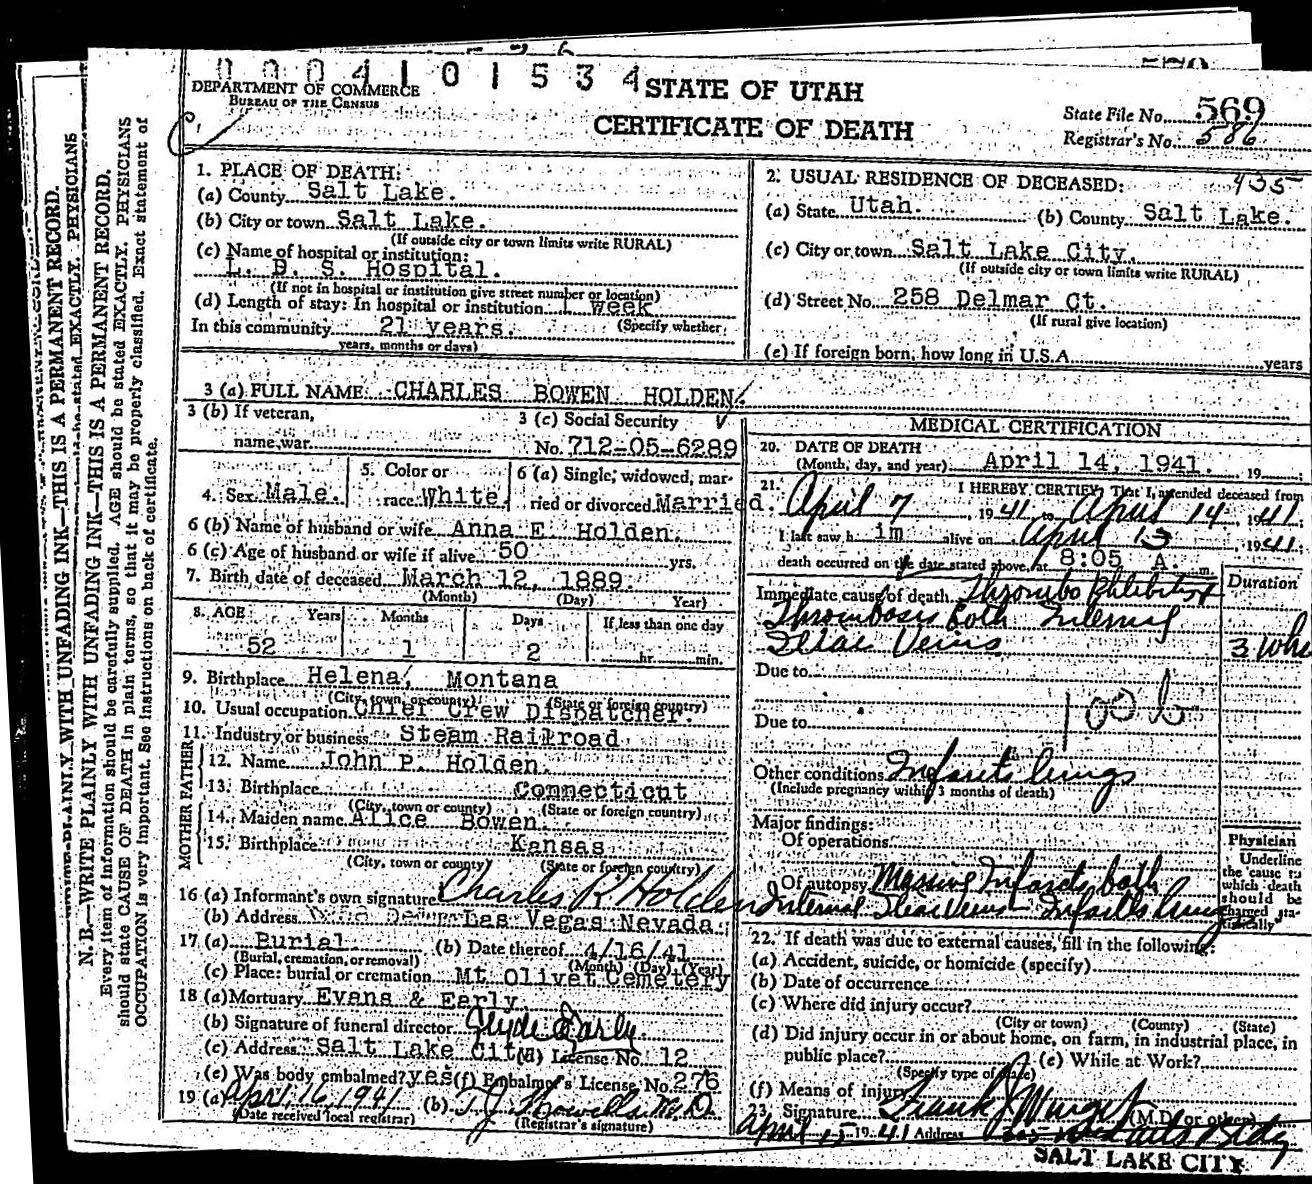 0004101534
DEPARTMENT OF COMMERCE
BUREAU OF THE CENSUS
STATE OF UTAH
CERTIFICATE OF DEATH
State File No. 569
Registrar's No. 586
N. B.—WRITE PLAINLY WITH UNFADING INK—THIS IS A PERMANENT RECORD.
Every item of information should be carefully supplied. AGE should be stated EXACTLY. PHYSICIANS
should state CAUSE OF DEATH in plain terms, so that it may be properly classified. Exact statement of
OCCUPATION is very important. See instructions on back of certificate.
1. PLACE OF DEATH:
(a) County Salt Lake.
(b) City or town Salt Lake.
(If outside city or town limits write RURAL)
(c) Name of hospital or institution:
L. D. S. Hospital.
(If not in hospital or institution give street number or location)
(d) Length of stay: In hospital or institution 1 week
In this community 21 years. (Specify whether
years, months or days)
2. USUAL RESIDENCE OF DECEASED: 435
(a) State Utah. (b) County Salt Lake.
(c) City or town Salt Lake City.
(If outside city or town limits write RURAL)
(d) Street No. 258 Delmar Ct.
(If rural give location)
(e) If foreign born, how long in U.S.A. years
3 (a) FULL NAME CHARLES BOWEN HOLDEN.
3 (b) If veteran, name war
3 (c) Social Security
No. 712-05-6289
4. Sex Male.
5. Color or race White.
6 (a) Single, widowed, mar-
ried or divorced Married.
6 (b) Name of husband or wife Anna E. Holden.
6 (c) Age of husband or wife if alive 50 yrs.
7. Birth date of deceased March 12, 1889.
(Month) (Day) Year)
8. AGE Years Months Days If less than one day
52 1 2 hr. min.
9. Birthplace Helena, Montana
(City, town or county) (State or foreign country)
10. Usual occupation Chief Crew Dispatcher.
11. Industry or business Steam Railroad
FATHER
12. Name John P. Holden.
13. Birthplace Connecticut
(City, town or county) (State or foreign country)
MOTHER
14. Maiden name Alice Bowen.
15. Birthplace Kansas
(City, town or county) (State or foreign country)
16 (a) Informant's own signature Charles R Holden
(b) Address Las Vegas Nevada.
17 (a) Burial (b) Date thereof 4/16/41
(Burial, cremation, or removal) (Month) (Day) (Year)
(c) Place: burial or cremation Mt. Olivet Cemetery
18 (a) Mortuary Evans & Early
(b) Signature of funeral director Clyde Early.
(c) Address Salt Lake City (d) License No. 12
(e) Was body embalmed? yes (f) Embalmer's License No. 276
19 (a) April 16, 1941 (b) T J Howells M.D.
(Date received local registrar) (Registrar's signature)
MEDICAL CERTIFICATION
20. DATE OF DEATH
(Month, day, and year) April 14, 1941. 19
21. I HEREBY CERTIFY, That I attended deceased from
April 7, 1941 to April 14, 1941.
I last saw him alive on April 13, 1941.
death occurred on the date stated above, at 8:05 A. m.
Duration
Immediate cause of death Thrombo Phlebitis &
Thrombosis Both Internal
Iliac Veins 3 Wks
Due to
100 b
Due to
Other conditions Infarcts lungs
(Include pregnancy within 3 months of death)
Major findings:
Of operations
Of autopsy Massive Infarcts both
Internal Iliac Veins - Infarcts lungs
Physician
Underline
the cause to
which death
should be
charged sta-
tistically
22. If death was due to external causes, fill in the following:
(a) Accident, suicide, or homicide (specify)
(b) Date of occurrence
(c) Where did injury occur?
(City or town) (County) (State)
(d) Did injury occur in or about home, on farm, in industrial place, in
public place? (e) While at Work?
(Specify type of place)
(f) Means of injury
23. Signature Frank J (M.D. or other)
April 15 1941 Address Bldg
SALT LAKE CITY